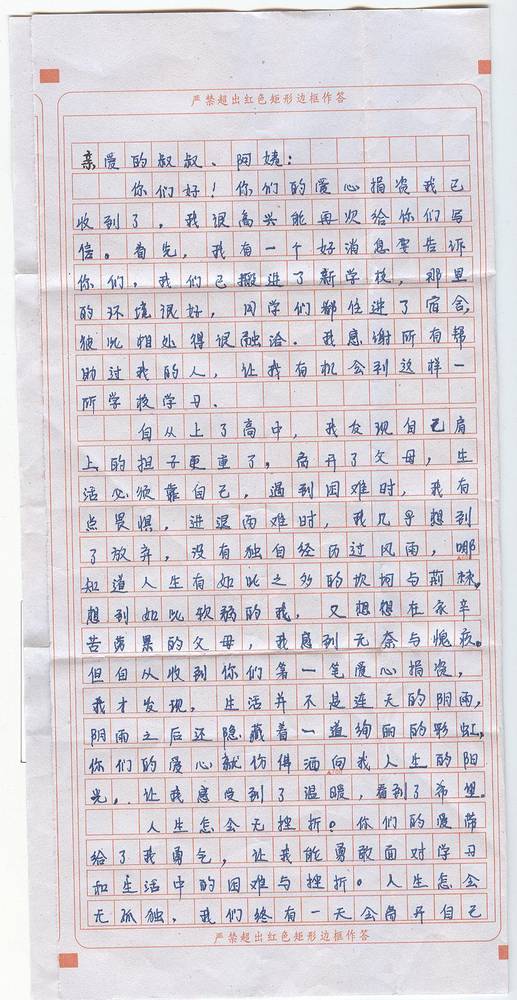 严禁超出红色矩形边框作答
亲爱的叔叔、阿姨：
你们好！你们的爱心捐资我已
收到了。我很高兴能再次给你们写
信。首先，我有一个好消息要告诉
你们，我们已搬进了新学校，那里
的环境很好，同学们都住进了宿舍，
彼此相处得很融洽。我感谢所有帮
助过我的人，让我有机会到这样一
所学校学习。
自从上了高中，我发现自己肩
上的担子更重了，离开了父母，生
活必须靠自己，遇到困难时，我有
点畏惧，进退两难时，我几乎想到
了放弃，没有独自经历过风雨，哪
知道人生有如此之多的坎坷与荆棘。
想到如此软弱的我，又想想在家辛
苦劳累的父母，我感到无奈与愧疚。
但自从收到你们第一笔爱心捐资，
我才发现，生活并不是连天的阴雨，
阴雨之后还隐藏着一道绚丽的彩虹，
你们的爱心就仿佛洒向我人生的阳
光，让我感受到了温暖，看到了希望。
人生怎会无挫折。你们的爱带
给了我勇气，让我能勇敢面对学习
和生活中的困难与挫折。人生怎会
无孤独，我们终有一天会离开自己
严禁超出红色矩形边框作答